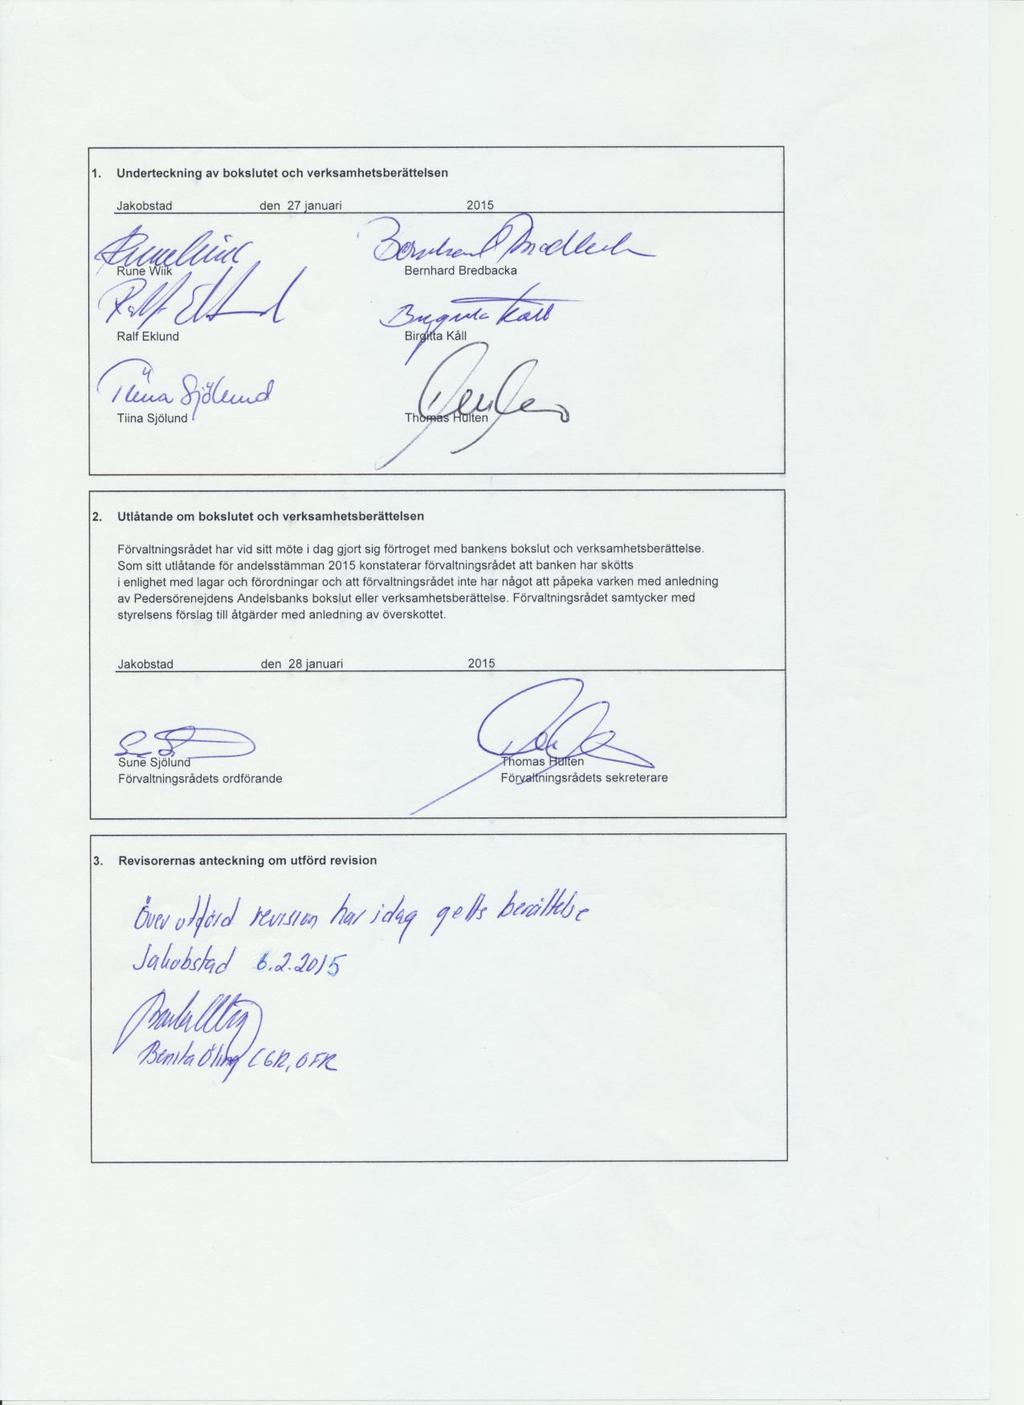 1. Underteckning av bokslutet och verksamhetsberättelsen
Jakobstad den 27 januari 2015
Rune Wiik Bernhard Bredbacka
Ralf Eklund
Ralf Eklund Birgitta Kåll
Tiina Sjölund
Tiina Sjölund Thomas Hulten
2. Utlåtande om bokslutet och verksamhetsberättelsen
Förvaltningsrådet har vid sitt möte i dag gjort sig förtroget med bankens bokslut och verksamhetsberättelse.
Som sitt utlåtande för andelsstämman 2015 konstaterar förvaltningsrådet att banken har skötts
i enlighet med lagar och förordningar och att förvaltningsrådet inte har något att påpeka varken med anledning
av Pedersörenejdens Andelsbanks bokslut eller verksamhetsberättelse. Förvaltningsrådet samtycker med
styrelsens förslag till åtgärder med anledning av överskottet.
Jakobstad den 28 januari 2015
Sune Sjölund Thomas Hulten
Förvaltningsrådets ordförande Förvaltningsrådets sekreterare
3. Revisorernas anteckning om utförd revision
Över utförd revision har idag getts berättelse
Jakobstad 6.2.2015
Benita Öling CGR, OFR